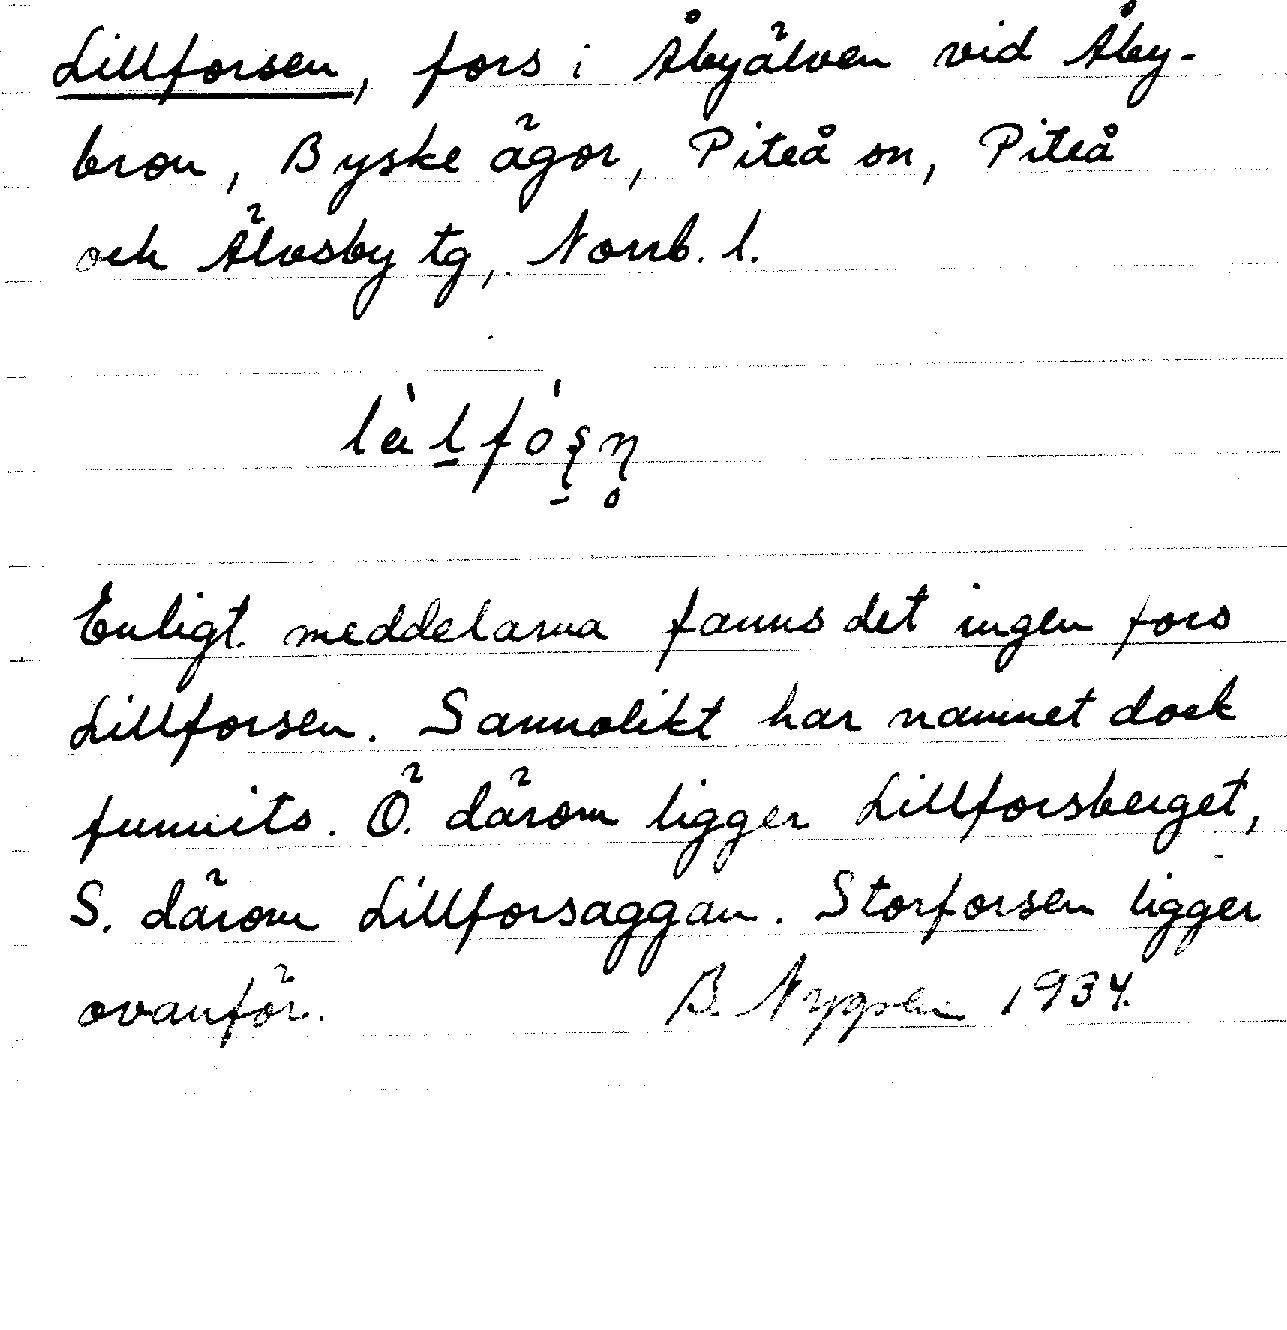 Lillforsen, fors i Åbyälven vid Åby-
bron, Byske ägor, Piteå sn, Piteå
och Älvsby tg, Norrb. l.
Enligt meddelarna fanns det ingen fors
Lillforsen. Sannolikt har namnet dock
funnits. Ö. därom ligger Lillforsberget,
S. därom Lillforsaggan. Storforsen ligger
ovanför. B. 1934.